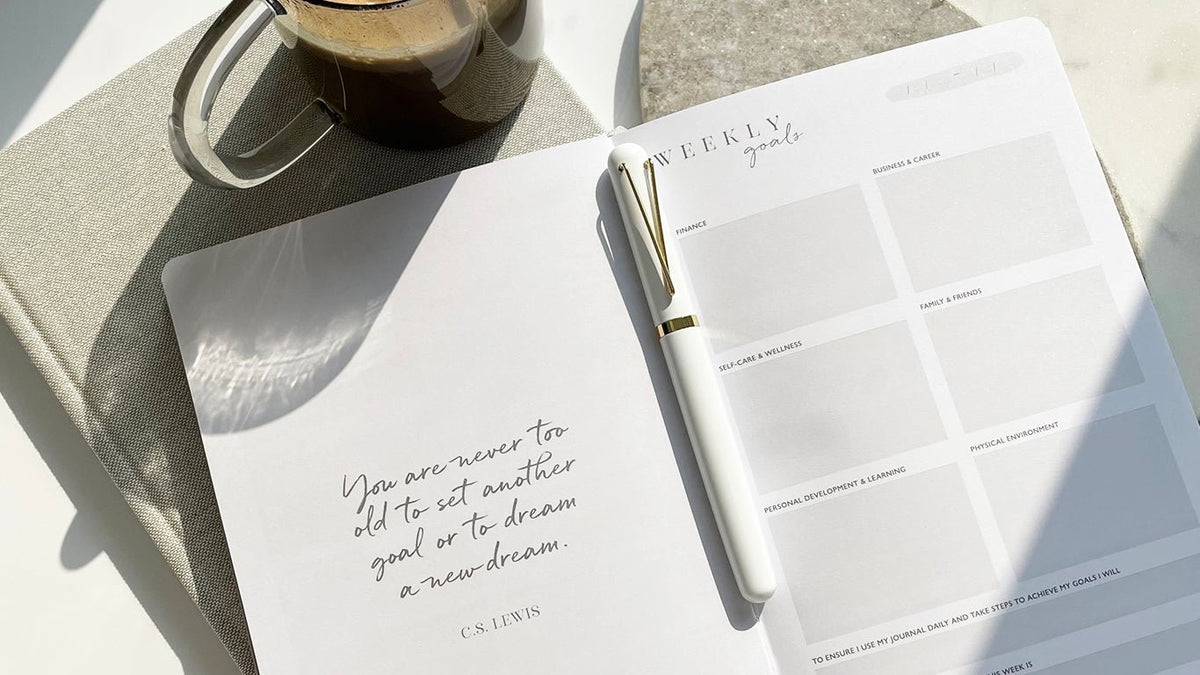 You are never too
old to set another
goal or to dream
a new dream.
C.S. LEWIS
WEEKLY
goals
FINANCE
BUSINESS & CAREER
SELF-CARE & WELLNESS
FAMILY & FRIENDS
PERSONAL DEVELOPMENT & LEARNING
PHYSICAL ENVIRONMENT
TO ENSURE I USE MY JOURNAL DAILY AND TAKE STEPS TO ACHIEVE MY GOALS I WILL
WEEK IS